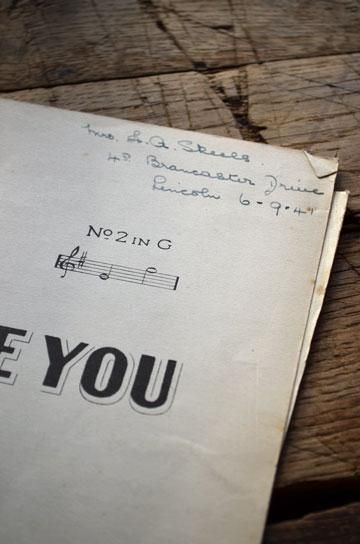 Mrs. L. A. Skeels.
48 Brancaster Drive
Lincoln 6-9-41
No 2 IN G
E YOU